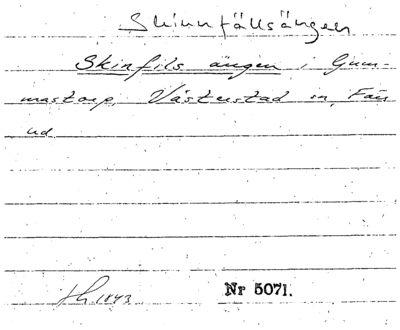 Skinnfällsängen
Skinfils ängen i Gum-
mastorp, Västerstad sn, Färs
ud.
Lh. 1843
Nr 5071.